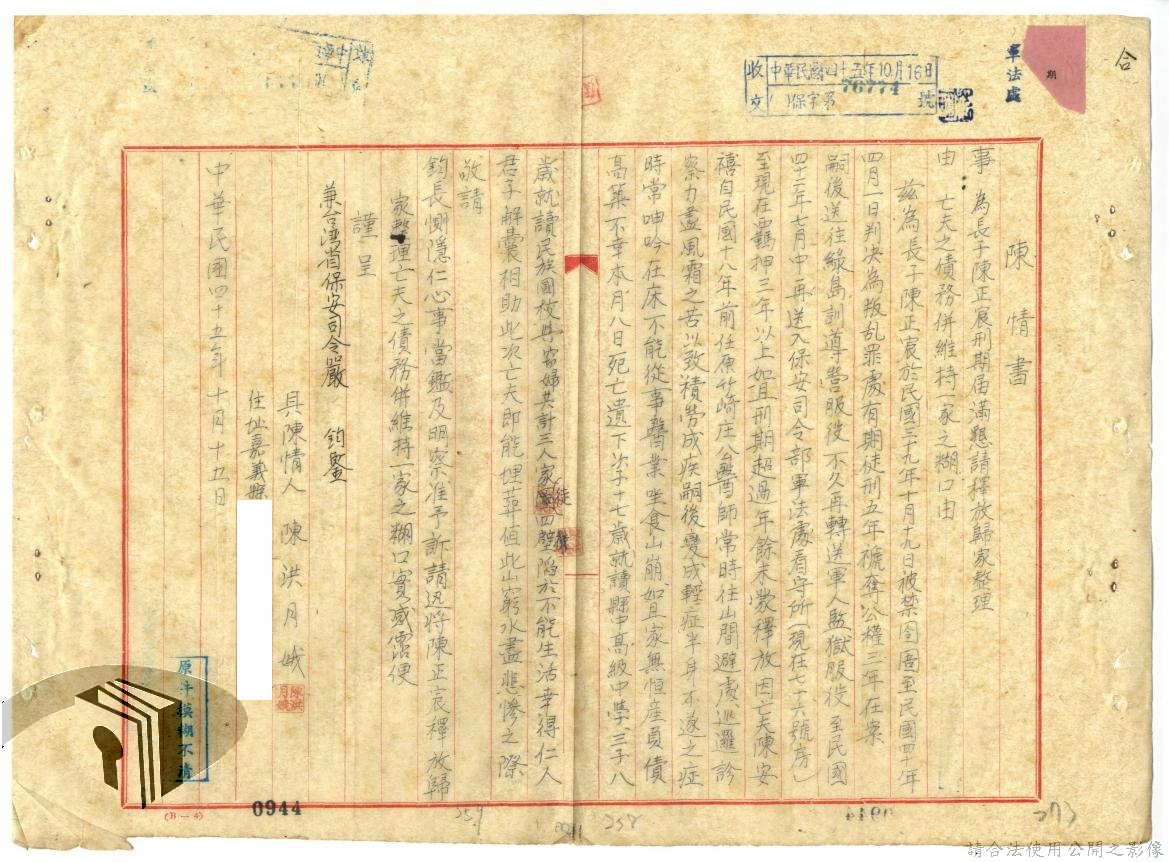 合
軍法處
期
收文
中華民國四十五年10月16日
( )保字第76774號
陳情書
事 為長子陳正宸刑期屆滿懇請釋放歸家整理
由 亡夫之債務併維持一家之糊口由
茲為長子陳正宸於民國三十九年十月十九日被禁囹圄至民國四十年
四月一日判決為叛乱罪處有期徒刑五年褫奪公權三年在案
嗣後送往綠島訓導營服役不久再轉送軍人監獄服役至民國
四十二年七月中再送入保安司令部軍法處看守所(現在七十六號房)
至現在羈押三年以上如且刑期超過年餘未蒙釋放因亡夫陳安
禧自民國十八年前任原竹崎庄公醫師常時往山間避處巡邏診
察力盡風霜之苦以致積勞成疾嗣後變成輕症半身不遂之症
時常呻吟在床不能從事醫業坐食山崩如且家無恒産負債
高築不幸本月八日死亡遺下次子十七歲就讀縣中高級中學三子八
歲就讀民族國校與寡婦共計三人家徒四壁陷於不能生活幸得仁人
君子解囊相助此次亡夫即能埋葬值此山窮水盡悲慘之際
敬請
鈞長惻隱仁心事當鑑及明察准予訴請迅將陳正宸釋放歸
家整理亡夫之債務併維持一家之糊口實感德便
謹呈
兼台灣省保安司令嚴 鈞鑒
具陳情人 陳洪月娥
住址嘉義縣
中華民國四十五年十月十五日
原件模糊不清
(B-4)
0944
257
258
273
請合法使用公開之影像